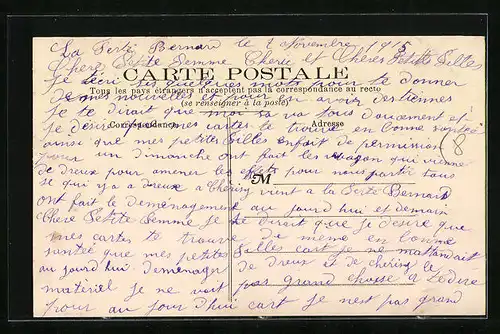 La Ferté Bernard le 1 Novembre 1915
Chere Petite Femme Cherie et Cheres Petites Filles
CARTE POSTALE
Je técri quelques mots pour te donner
Tous les pays étrangers n'acceptent pas la correspondance au recto
de mes nouvelles et pour en avoir des tiennes
(se renseigner à la poste)
Je te dirait que moi sa va tous doucement et
Correspondance
Adresse
je désire que mes cartes te trouve en bonne santée
ainsi que mes petites filles en fait de permission
pour un dimanche ont fait les wagon qui vienne
8
5M
de dreux pour amener les pour nous partir tous
se qui y a a dreux a Cherisy vient a la Ferte Bernard
ont fait le demenagement au jourd hui et demain
Chere Petite Femme je te dirait que je desire que
mes cartes te trouve de meme en bonne
santée que mes petites filles cart je ne mattandait
au jourd hui demenager de dreux et de cherisy le
matériel je ne voit pas grand chosse a te dire
pour au jour d'hui cart je nest pas grand